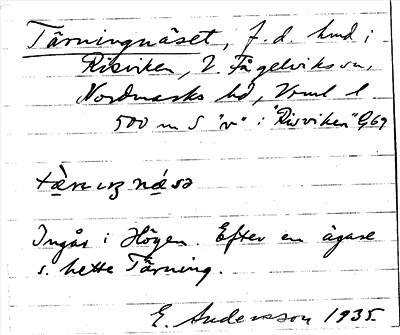 Tärningnäset, f.d. hmd i
Risviken, V. Fågelviks sn,
Nordmarks hd, Vrml l
500 m S "v" i "Risviken" G69
tæ̀rnıŋnǽsə
Ingår i Högen. Efter en ägare
s. hette Tärning.
E. Andersson 1935.